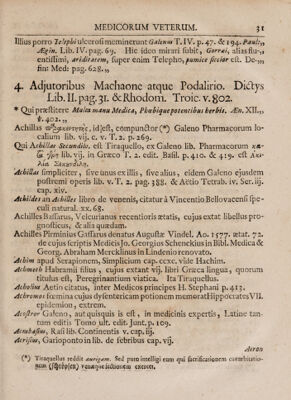 MEDICORUM VETERUM. 31
Illius porro Telephi ulcerosi meminerunt Galenus T. IV. p. 47. & 194. Paul:,
Ægin. Lib. IV. pag. 69. Hic ideo mirari subit, Gorræi, alias
entissimi, ariditatem, super enim Telepho, pumice siccior est. De-
fin: Med: pag. 628.,,
4. Adjutoribus Machaone atque Podalirio. Dictys
Lib. II. pag. 31. & Rhodom. Troic. v. 802.
* Qui præstitere Multa manu Medica, Phœbique potentibus herbis. Æn. XII.,,
v. 402.,,
Achillas idest, compunctore (*) Galeno Pharmacorum lo-
calium lib. vii. c. v. T. 2. p. 269.
Qui Achillas Secundilio. est Tiraquello, ex Galeni lib. Pharmacorum
lib. vij. in Græco T. 2. edit. Basil. p. 410. & 419. est
Achillas simpliciter, sive unus ex illis, sive alius, eidem Galeno ejusdem
postremi operis lib. v. T. 2. pag. 388. & Aetio Tetrab. iv. Ser. iij.
cap. xiv.
Achilides an Achilles libro de venenis, citatur à Vincentio Bellovacensi spe-
culi natural. xx. 68.
Achilles Bassarus, Velcurianus recentioris ætatis, cujus extat libellus pro-
gnosticus, & alia quædam.
Achilles Pirminius Gassarus denatus Augustæ Vindel. Ao. 1577. ætat. 72.
de cujus scriptis Medicis Jo. Georgius Schenckius in Bibl. Medica &
Georg. Abraham Mercklinus in Lindenio renovato.
Achim apud Serapionem, Simplicium cap. cexc. vide Hachim.
Achmeth Habramii filius, cujus extant vij. libri Græca lingua, quorum
titulus est, Peregrinantium viatica. Ita Tiraquellus.
Acholius Aetio citatus, inter Medicos principes H. Stephani p. 413.
Achromos fœmina cujus dysentericam potionem memorat Hippocrates VII.
epidemion, extrem.
Acestror Galeno, aut quisquis is est, in medicinis expertis, Latine tan-
tum editis Tomo ult. edit Junt. p. 109.
Acrabasius, Rasi lib. Continentis v. cap. iij.
Acrisius, Gariopontо in lib. de febribus cap. vij.
Acron
(*) Tiraquellus reddit aurigam. Sed puto intelligi eum qui sacrificationem
exercet.